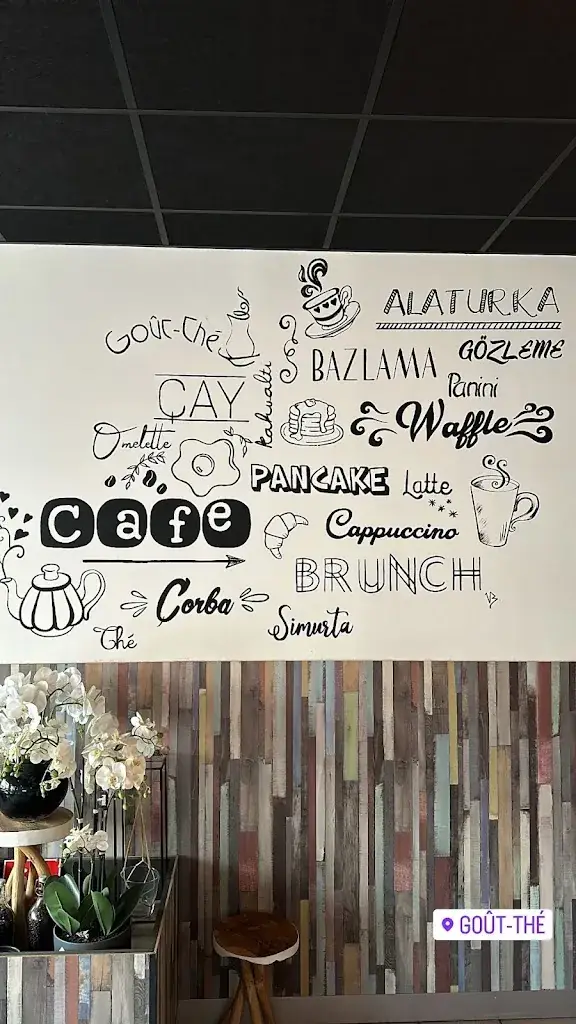 GOÛT-Thé
ALATURKA
GÖZLEME
BAZLAMA
Panini
ÇAY
kahvaltı
Waffle
Omelette
PANCAKE
Latte
Cafe
Cappuccino
BRUNCH
Corba
Simurta
Thé
GOÛT-THÉ